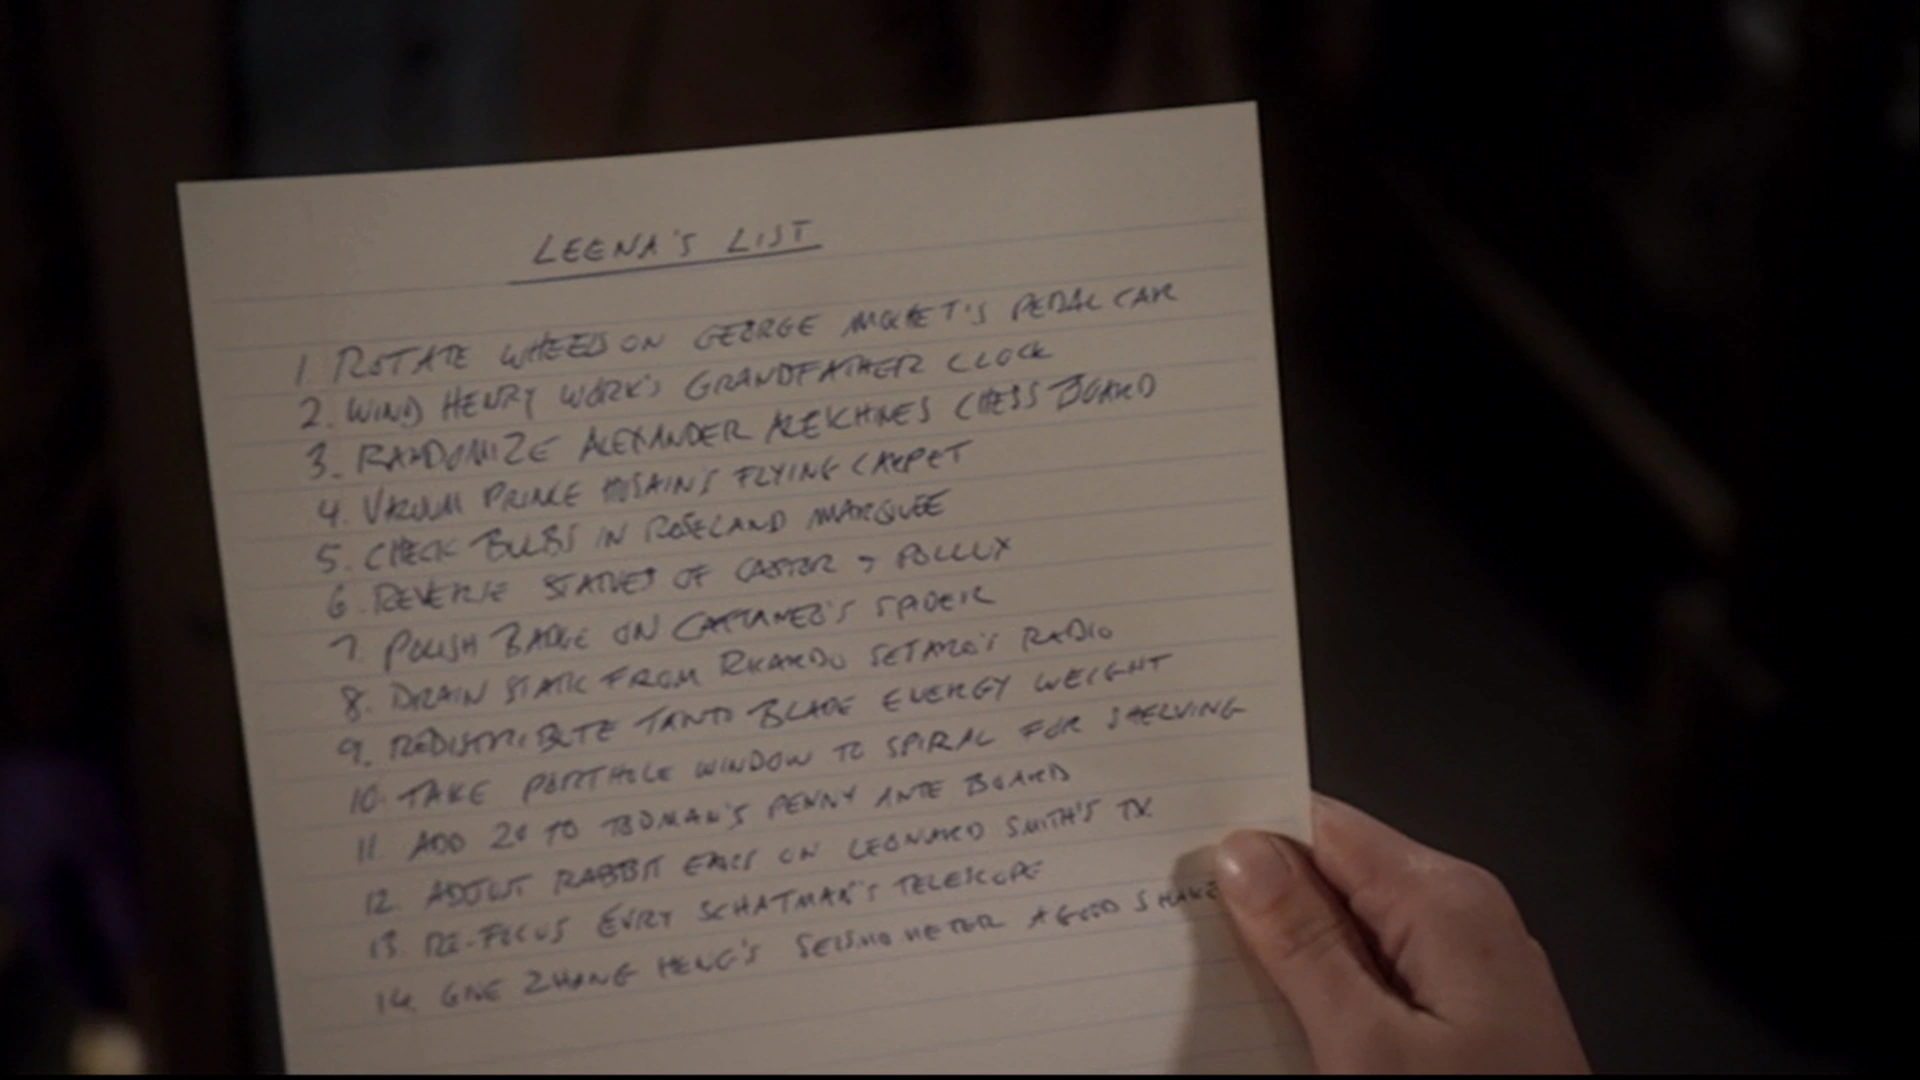 LEENA'S LIST
1 ROTATE WHEELS ON GEORGE PEDAL CAR
2. WIND HENRY WORK'S GRANDFATHER CLOCK
3. RANDOMIZE ALEXANDER ALEKHINES CHESS BOARD
4. VACUUM PRINCE HUSAIN'S FLYING CARPET
5. CHECK BULBS IN ROSELAND MARQUEE
6. REVERSE STATUES OF CASTOR & POLLUX
7. POLISH BADGE ON CATTANEO'S SPIDER
8. DRAIN STATIC FROM RICARDO SETARO'S RADIO
9. REDISTRIBUTE TANTO BLADE ENERGY WEIGHT
10. TAKE PORTHOLE WINDOW TO SPIRAL FOR SHELVING
11. ADD 2¢ TO TODMAN'S PENNY ANTE BOARD
12. ADJUST RABBIT EARS ON LEONARD SMITH'S TV.
13. RE-FOCUS EVRY SCHATMAN'S TELESCOPE
14. GIVE ZHANG HENG'S SEISMOMETER A GOOD SHAKE